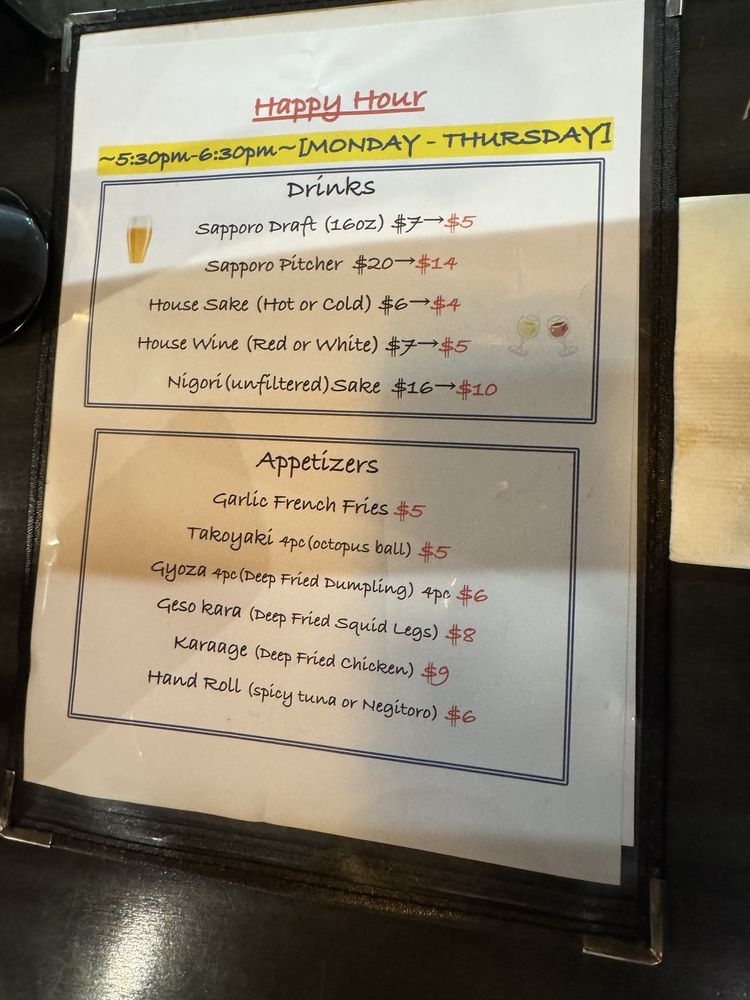 Happy Hour
~5:30pm-6:30pm~[MONDAY - THURSDAY]
Drinks
Sapporo Draft (16oz) $7→$5
Sapporo Pitcher $20→$14
House Sake (Hot or Cold) $6→$4
House Wine (Red or White) $7→$5
Nigori(unfiltered)Sake $16→$10
Appetizers
Garlic French Fries $5
Takoyaki 4pc(octopus ball) $5
Gyoza 4pc(Deep Fried Dumpling) 4pc $6
Geso kara (Deep Fried Squid Legs) $8
Karaage (Deep Fried Chicken) $9
Hand Roll (spicy tuna or Negitoro) $6